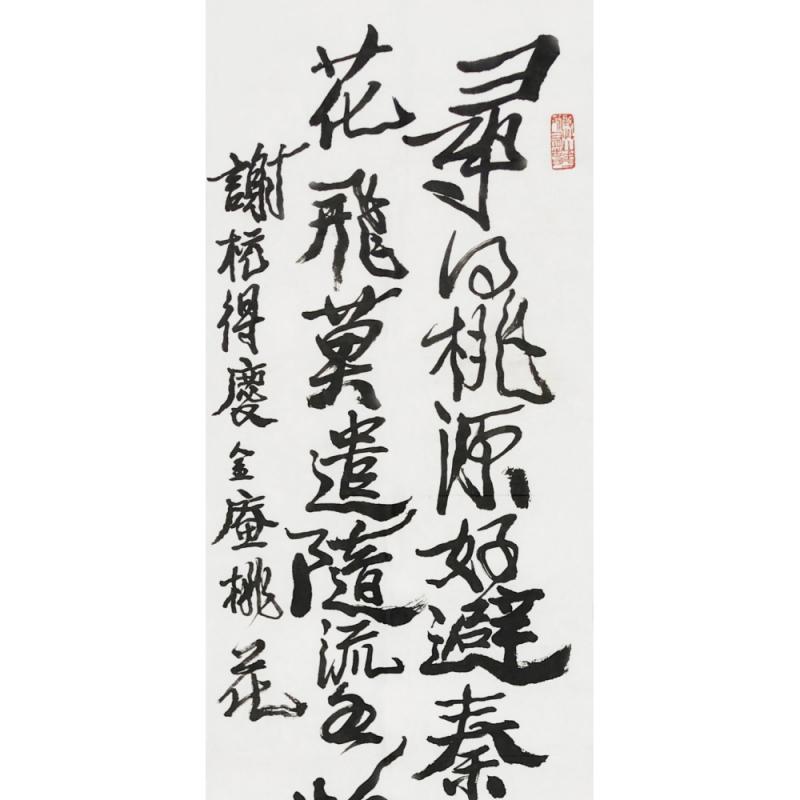 尋得桃源好避秦
花飛莫遣隨流水
謝枋得慶全庵桃花